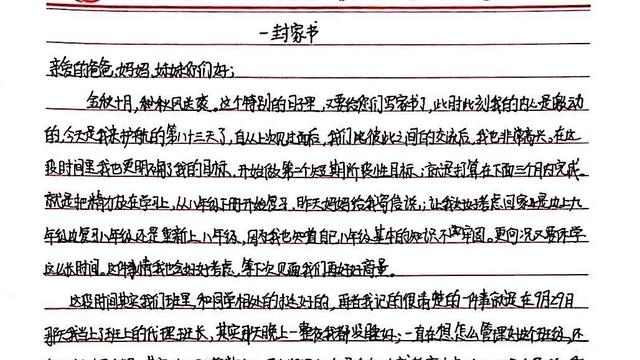 一封家书
亲爱的爸爸、妈妈、妹妹你们好：
金秋十月，秋风送爽。这个特别的日子里，又要给你们写家书了，此时此刻我的内心是激动
的，今天是我来护航的第八十三天了，自从上次见过面后，我们也彼此之间的交流后，我也非常高兴。在这
段时间里我也更明确了我的目标，开始做第一个短期阶段性目标；就是打算在下面三个月内完成。
就是把精力放在学习上，从八年级下册开始复习，昨天妈妈给我写信说；让我好好考虑回家是边上九
年级边复习八年级还是重新上八年级，因为我也知道自己八年级基本的知识不牢固。更何况又要停学
这么长时间。这件事情我也会好好考虑，等下次见面我们再好好商量。
这段时间其实我们班里，和同学相处的也还好的，再者我记的很清楚的一件事就是在9月29
那天我当上了班上的代理班长，其实那天晚上一整夜我都没睡好；一直在想怎么管理好这个班级，还